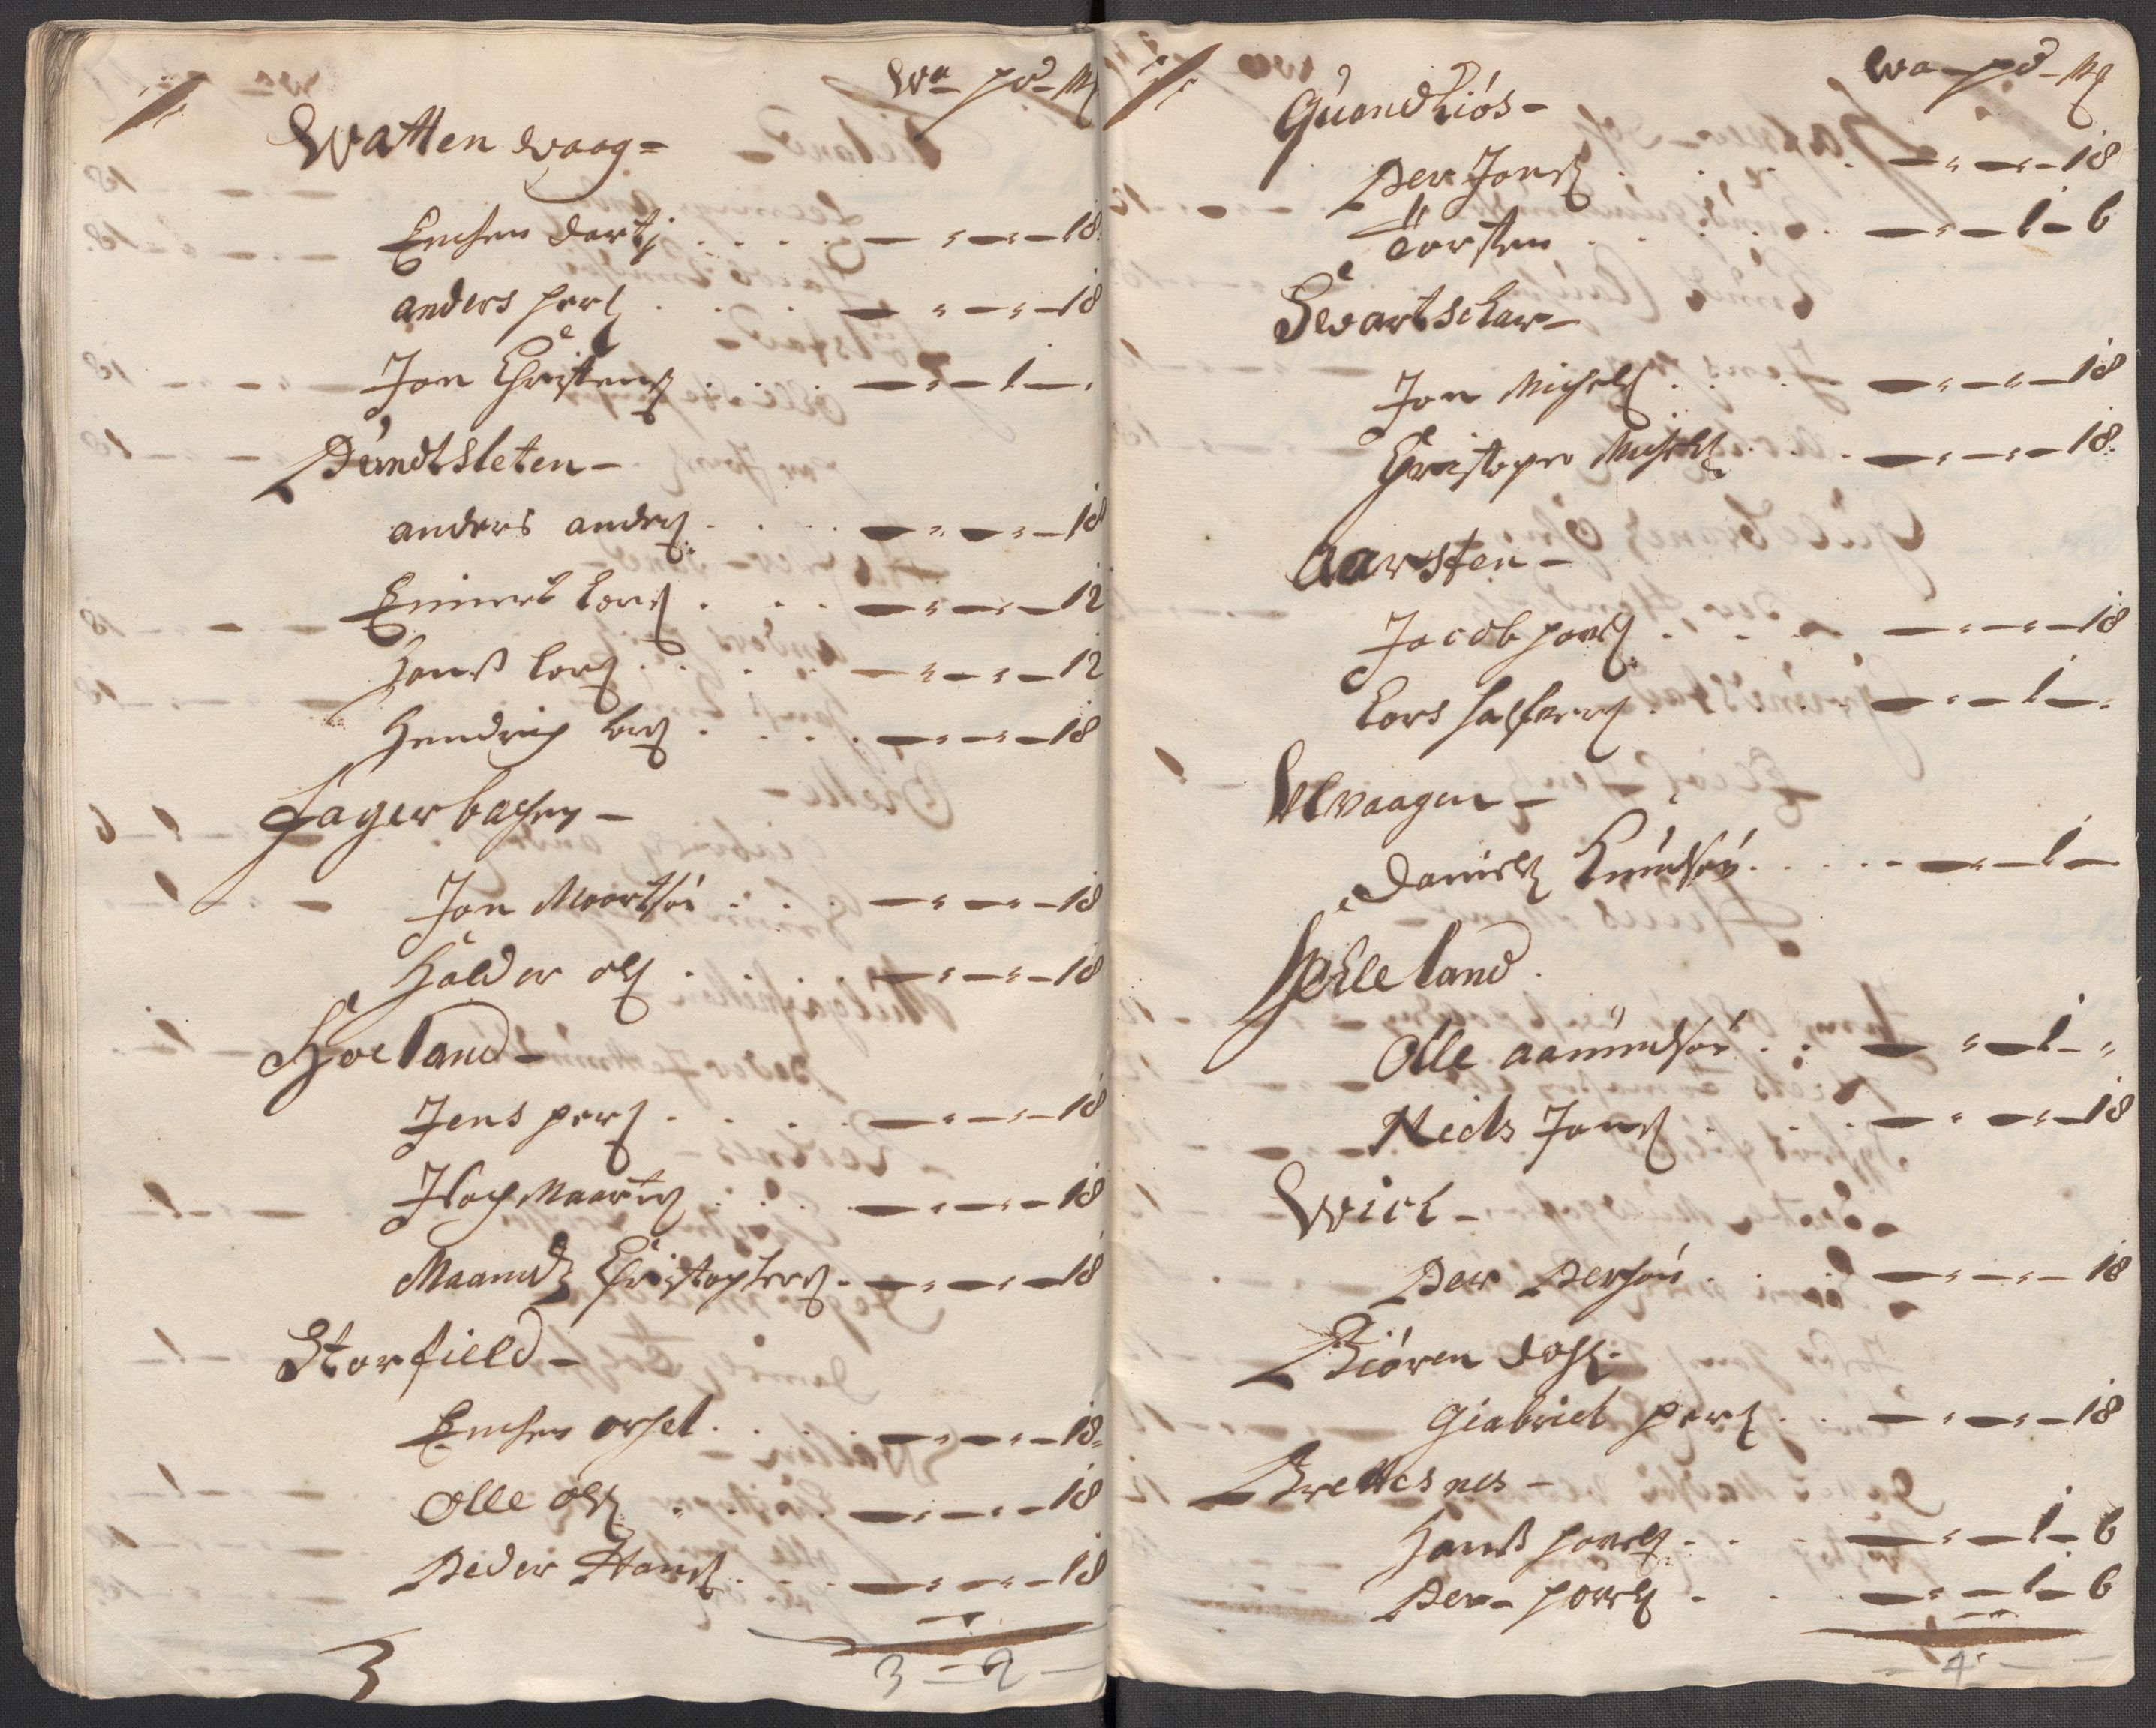 Wa - pd - Mk
Watten waag =
Enchen dortj . . . . — " — " — 18
anders pers . . . . — " — " — 18
Jon Christens . . . . — " — 1 — "
Pundtsleten —
anders anders . . . . — " — " — 18
Einert Lars . . . — " — " — 12
Hanß Lars . . . — " — " — 12
Hendrich Lars . . . . — " — " — 18
Fagerbachen —
Jon Moortsøn . . . — " — " — 18
Halder ols . . . . — " — " — 18
Høeland —
Jens pers . . . . — " — " — 18
Isach Maarts . . . . — " — " — 18
Maands Christophers . — " — " — 18
Storfield —
Enchen . . . . — " — " — 18
Olle ols . . . — " — " — 18
Peder Hans . . . — " — " — 18
3
3 — 2 —
Wa — pd — Mk
Quandhiós —
Per Jons . . . . — " — " — 18
Torsten . . . . — " — 1 — 6
Swartschar —
Jon Michels . . . — " — " — 18
Christoper Michels . . . — " — " — 18
Aarsten —
Jacob povels . . . — " — " — 18
Lars . . . . — " — 1 — "
Ulvaagen —
Daniels Knudsøn . . . . — " — 1 —
Helleland
Olle aamundsøn . . — " — 1 — "
Niels Jons . . . — " — " — 18
Wick —
Per Persøn . . . — " — " — 18
Biören dahl —
Giabriel pers . . — " — " — 18
Brettesnes —
Hanß povels . . . — " — 1 — 6
Per — povels . . — " — 1 — 6
— 4 — —